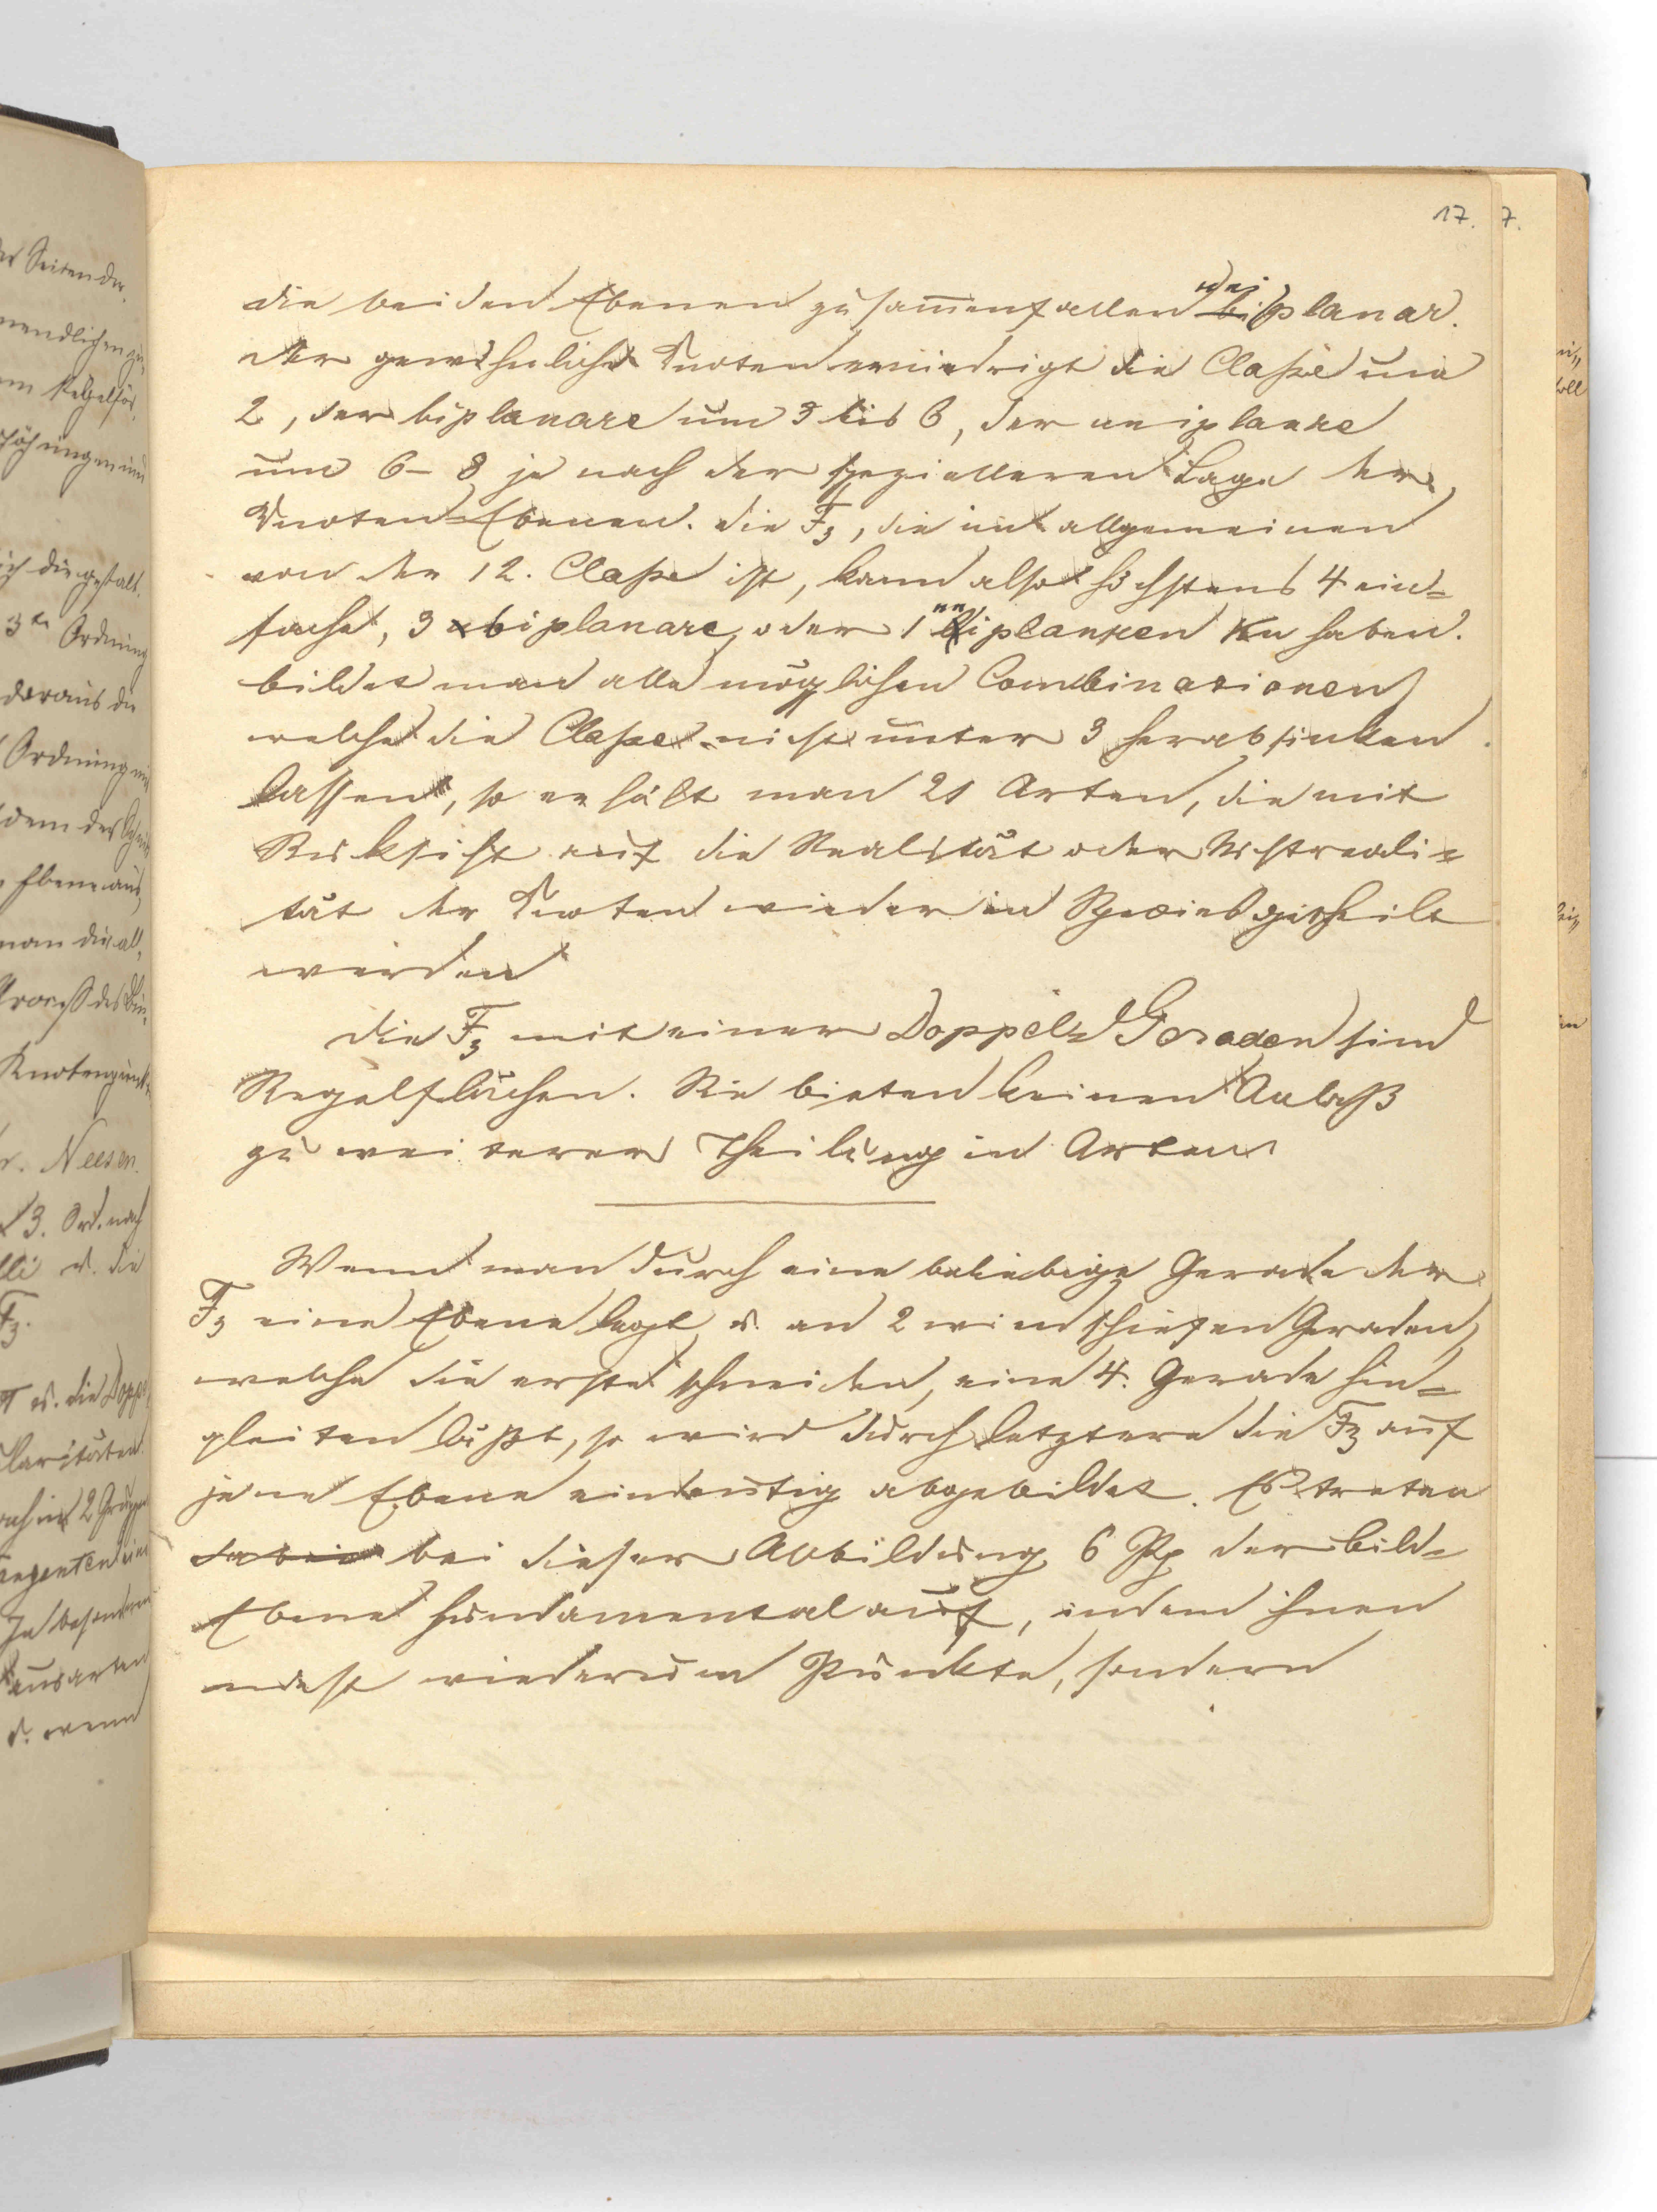 17. 7.
die beiden Ebenen zusam̄enfallen uniplanar.
Der gewöhnliche Knoten erniedrigt die Classe um
2, der biplanare um 3 bis 6, der uniplanare
um 6–8 je nach der spezielleren Lage der
Knoten-Ebenen. Die F3, die im allgemeinen
von der 12. Classe ist, kann also höchstens 4 ein=
fache, 3 biplanare, oder 1 uniplanaren Kn haben.
bildet man alle möglichen Combinationen
welche die Classe nicht unter 3 herabsinken
lassen, so erhält man 21 Arten, die mit
Rücksicht auf die Realität oder Nichtreali=
tät der Knoten wieder in Species getheilt
werden
Die F3 mit einer Doppel=Geraden sind
Regelflächen. Sie bieten keinen Anlaß
zu weiterer Theilung in Arten
Wenn man durch eine beliebige Gerade der
F3 eine Ebene legt u. an 2 windschiefen Geraden,
welche die erste schneiden, eine 4. Gerade hin=
gleiten läßt, so wird durch letztere die F3 auf
jene Ebene eindeutig abgebildet. Es treten
dabei bei dieser Abbildung 6 Pp der Bild=
Ebene fundamental auf, indem ihnen
nicht wiederum Punkte, sondern